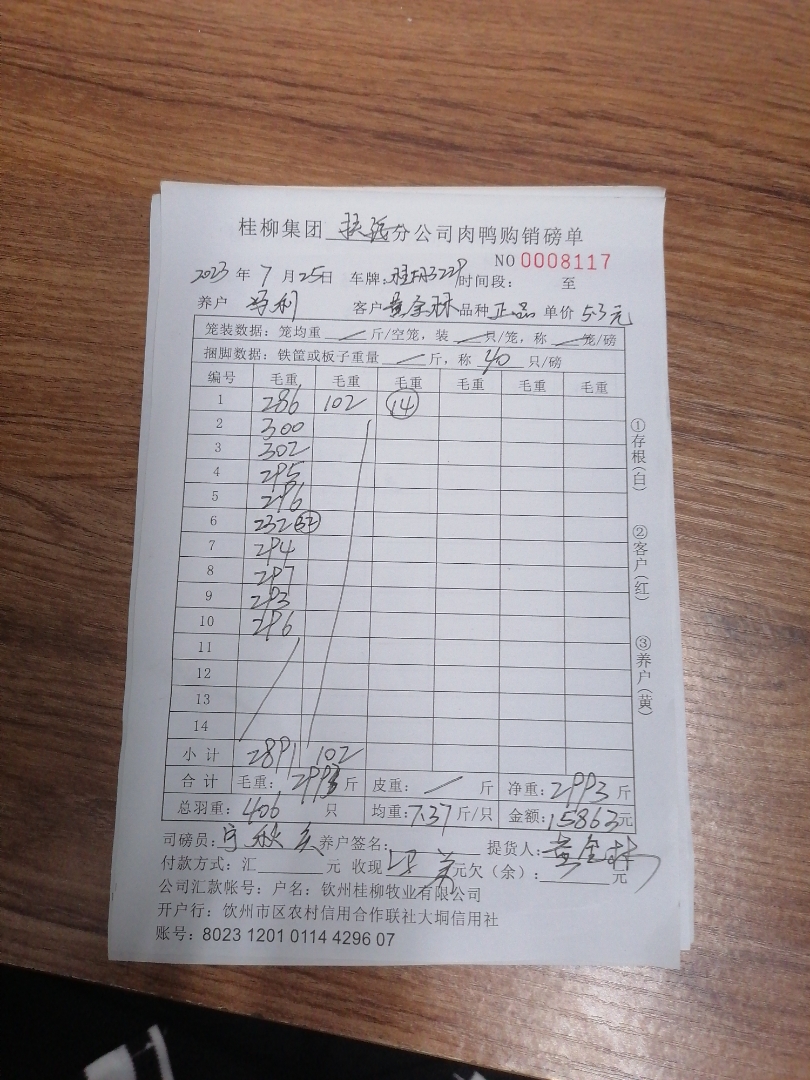 桂柳集团 分公司肉鸭购销磅单
NO 0008117
2023 年 7 月 25日 车牌: 时间段: 至
养户 冯利 客户 黄全林 品种 正品 单价 5.3元
笼装数据: 笼均重 / 斤/空笼, 装 / 只/笼, 称 / 笼/磅
捆脚数据: 铁筐或板子重量 / 斤, 称 40 只/磅
编号 毛重 毛重 毛重 毛重 毛重 毛重
1 286 102 14
2 300
3 302
4 295
5 296
6 232 32
7 294
8 297
9 293
10 296
11
12
13
14
小计 2891 102
合计 毛重: 2993 斤 皮重: / 斤 净重: 2993 斤
总羽重: 406 只 均重: 7.37 斤/只 金额: 15863元
司磅员: 养户签名: 提货人: 黄全林
付款方式: 汇 元 收现 元欠(余): 元
公司汇款帐号: 户名: 钦州桂柳牧业有限公司
开户行: 钦州市区农村信用合作联社大垌信用社
账号: 8023 1201 0114 4296 07
①存根(白)
②客户(红)
③养户(黄)